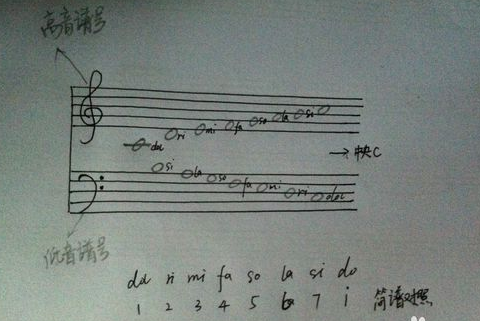 高音谱号
do ri mi fa so la si
→ 中央C
si la so fa mi ri do
低音谱号
do ri mi fa so la si do
1 2 3 4 5 6 7 i 简谱对照